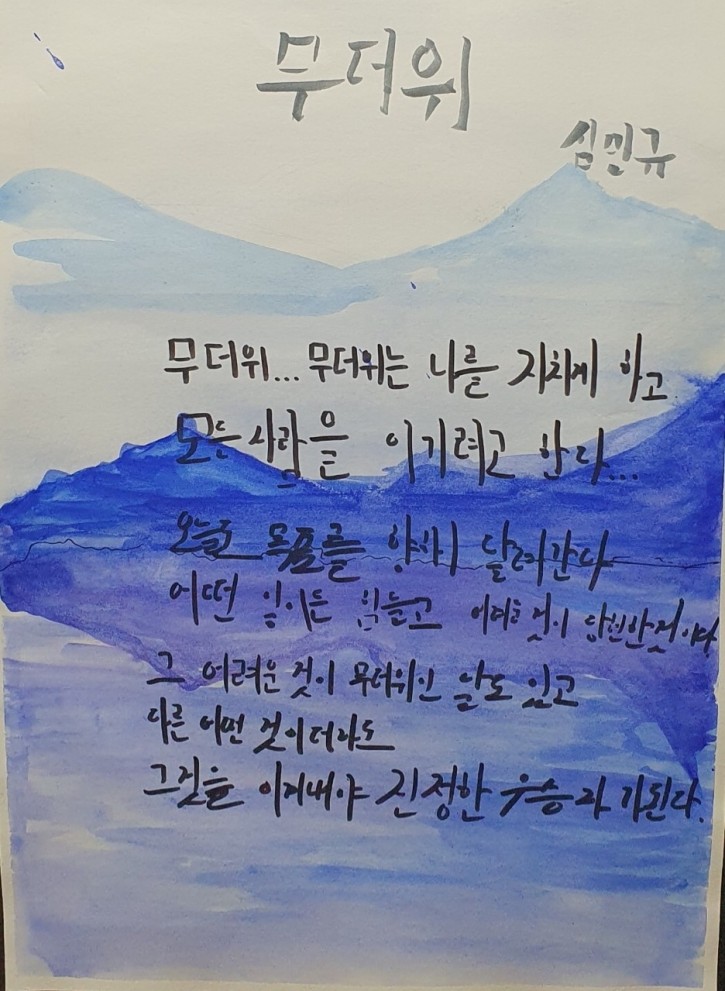 무더위
심민규
무더위... 무더위는 나를 지치게 하고
모든 사람을 이기려고 한다...
오늘도 목표를 향하여 달려간다
어떤 일이든 힘들고 어려운 것이 당연한것이다
그 어려운 것이 무더위인 날도 있고
다른 어떤 것이더라도
그것을 이겨내야 진정한 우승자가된다.